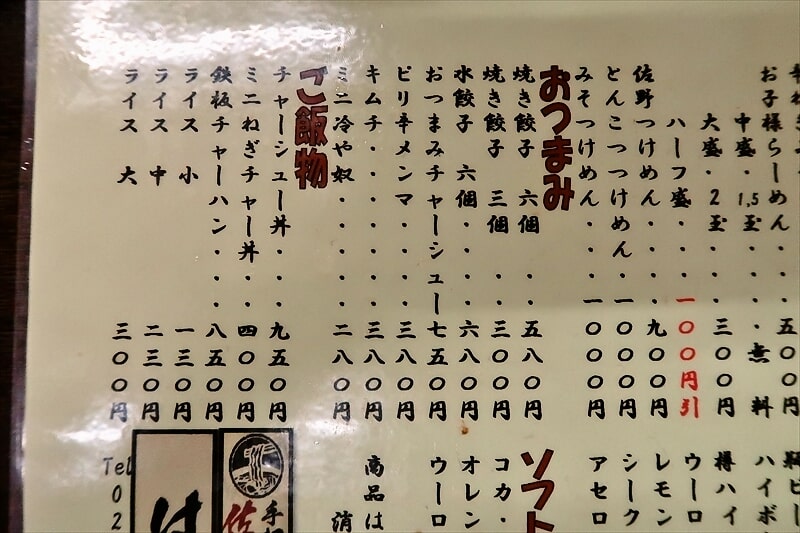 お子様らーめん・・五〇〇円
中盛・1,5玉・・無料
大盛・2玉・・三〇〇円
ハーフ盛・・・一〇〇円引
佐野つけめん・・・・九〇〇円
とんこつつけめん・一〇〇〇円
みそつけめん・・・一〇〇〇円
おつまみ
焼き餃子 六個・・五八〇円
焼き餃子 三個・・三〇〇円
水餃子 六個・・・六八〇円
おつまみチャーシュー七五〇円
ピリ辛メンマ・・・・三八〇円
キムチ・・・・・・・三八〇円
ミニ冷や奴・・・・・二八〇円
ご飯物
チャーシュー丼・・・九五〇円
ミニねぎチャー丼・・四〇〇円
鉄板チャーハン・・・八五〇円
ライス 小 一三〇円
ライス 中 二三〇円
ライス 大 三〇〇円
樽ハイ
ウーロ
レモン
シーク
アセロ
ソフト
コカ・
オレン
ウーロ
商品は
消
手
佐
は
Tel
02